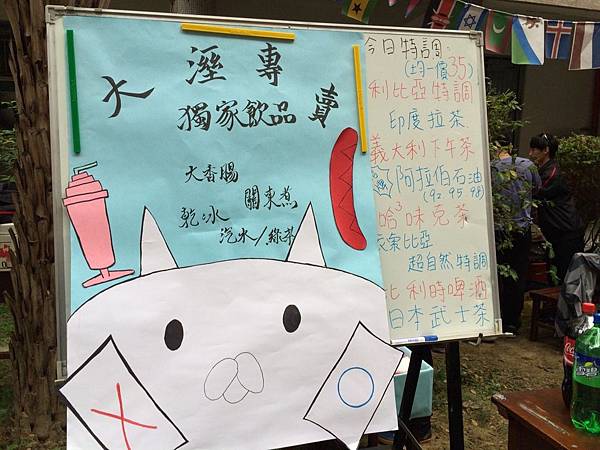 大溼專賣
獨家飲品
大香腸
關東煮
乾冰
汽水/綠茶
今日特調:
(均一價35)
利比亞特調
印度拉茶
義大利下午茶
阿拉伯石油
(92 95 98)
哈³味克茶
衣索比亞
超自然特調
比利時啤酒
日本武士茶